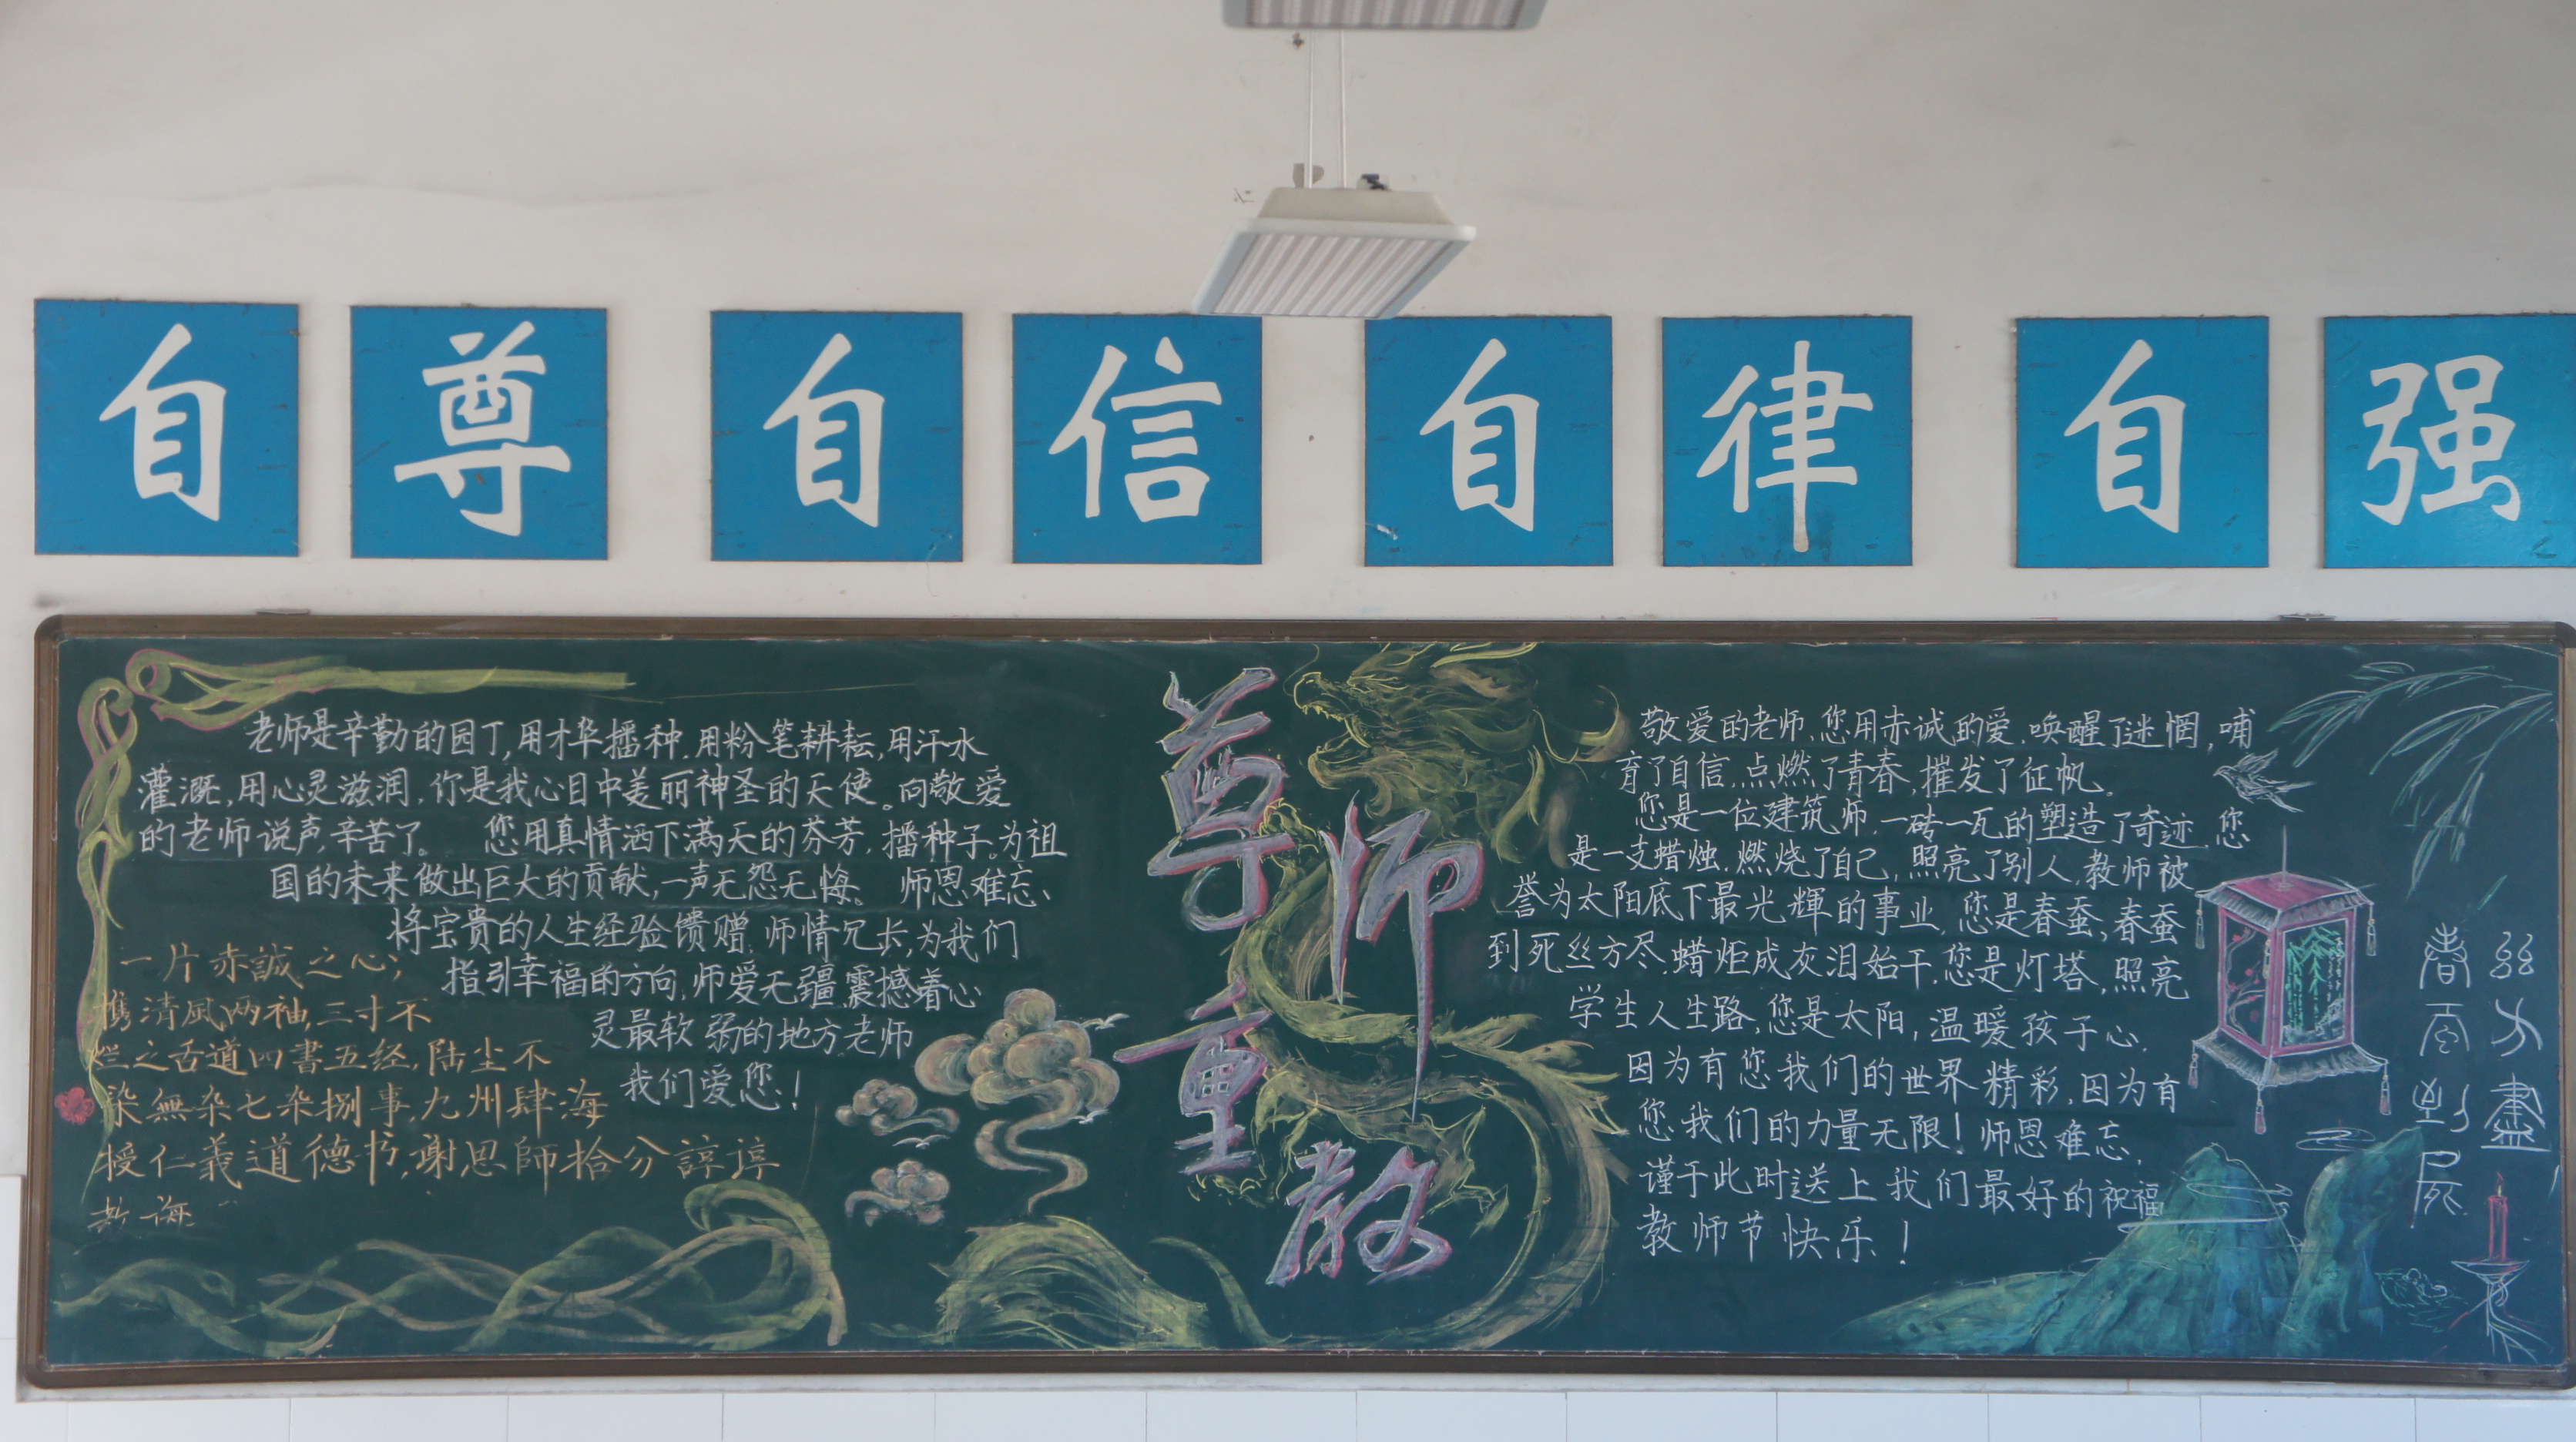 自 尊 自 信 自 律 自 强
老师是辛勤的园丁,用才华播种.用粉笔耕耘,用汗水
灌溉,用心灵滋润,你是我心目中美丽神圣的天使。向敬爱
的老师说声,辛苦了。 您用真情洒下满天的芬芳,播种子。为祖
国的未来做出巨大的贡献,一声无怨无悔。 师恩难忘、
将宝贵的人生经验馈赠.师情兄长,为我们
指引幸福的方向,师爱无疆.震撼着心
灵最软弱的地方老师
我们爱您!
一片赤誠之心;
携清風两袖,三寸不
烂之舌道四書五经,陆尘不
染無杂七杂捌事,九州肆海
授仁義道德书,谢恩師拾分諄諄
教诲
尊师重教
敬爱的老师,您用赤诚的爱.唤醒了迷惘,哺
育了自信,点燃了青春,摧发了征帆。
您是一位建筑师.一砖一瓦的塑造了奇迹.您
是一支蜡烛.燃烧了自己,照亮了别人.教师被
誉为太阳底下最光輝的事业,您是春蚕,春蚕
到死丝方尽.蜡炬成灰泪始干.您是灯塔,照亮
学生人生路,您是太阳,温暖孩子心.
因为有您我们的世界精彩,因为有
您我们的力量无限!师恩难忘,
谨于此时送上我们最好的祝福
教师节快乐!
絲方盡